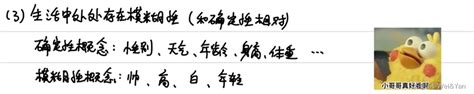 (3) 生活中处处存在模糊性 (和确定性相对)
确定性概念：性别、天气、年龄、身高、体重 …
模糊性概念：帅、高、白、年轻
小哥哥真好看啊